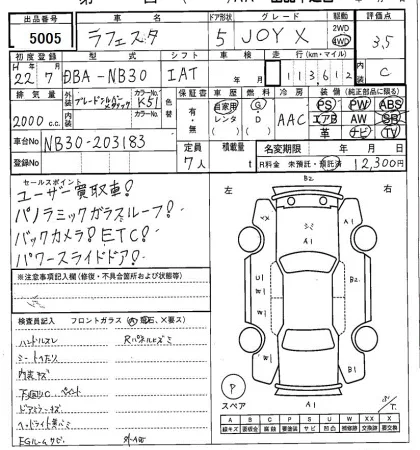 出品番号 車名 ドア形状 グレード 駆動 評価点
5005 ラフェスタ 5 JOY X 2WD 4WD 3.5
初度登録 型式 シフト 車検 走行(km・マイル) 内装
H 22年7月 DBA-NB30 IAT 年 月 113,612 C
排気量 外装 カラーNo. 色替 車歴 燃料 冷房 装備(純正部品に限る)
2000 c.c. K51 有・無 自家用 レンタ G D AAC PS PW ABS
エアB AW SR
革 ナビ TV
車台No NB30-203183 定員 7人 積載量 t 名変期限 年 月 日
登録No R料金 未預託・預託済 12,300円
セールスポイント
ユーザー買取車!
パノラミックガラスルーフ!
バックカメラ!ETC!
パワースライドドア!
※注意事項記入欄(修復・不具合箇所および状態等)
検査員記入 フロントガラス(A、飛石、X要ス)
ハンドルスレ Rパネルヒズミ
シートヘタリ
内装キズ
下回りC ペイント
ドアミラーキズ
ヘッドライト黄バミ
EGルームサビ
左 右
B2
XX A1
A1
U1 B2
W1
W1
W1
A1
P
スペア
T.
A B C P S U W XX X
線キズ 要板金 腐蝕 要塗装 サビ 凹凸 補修跡 交換跡 要交換